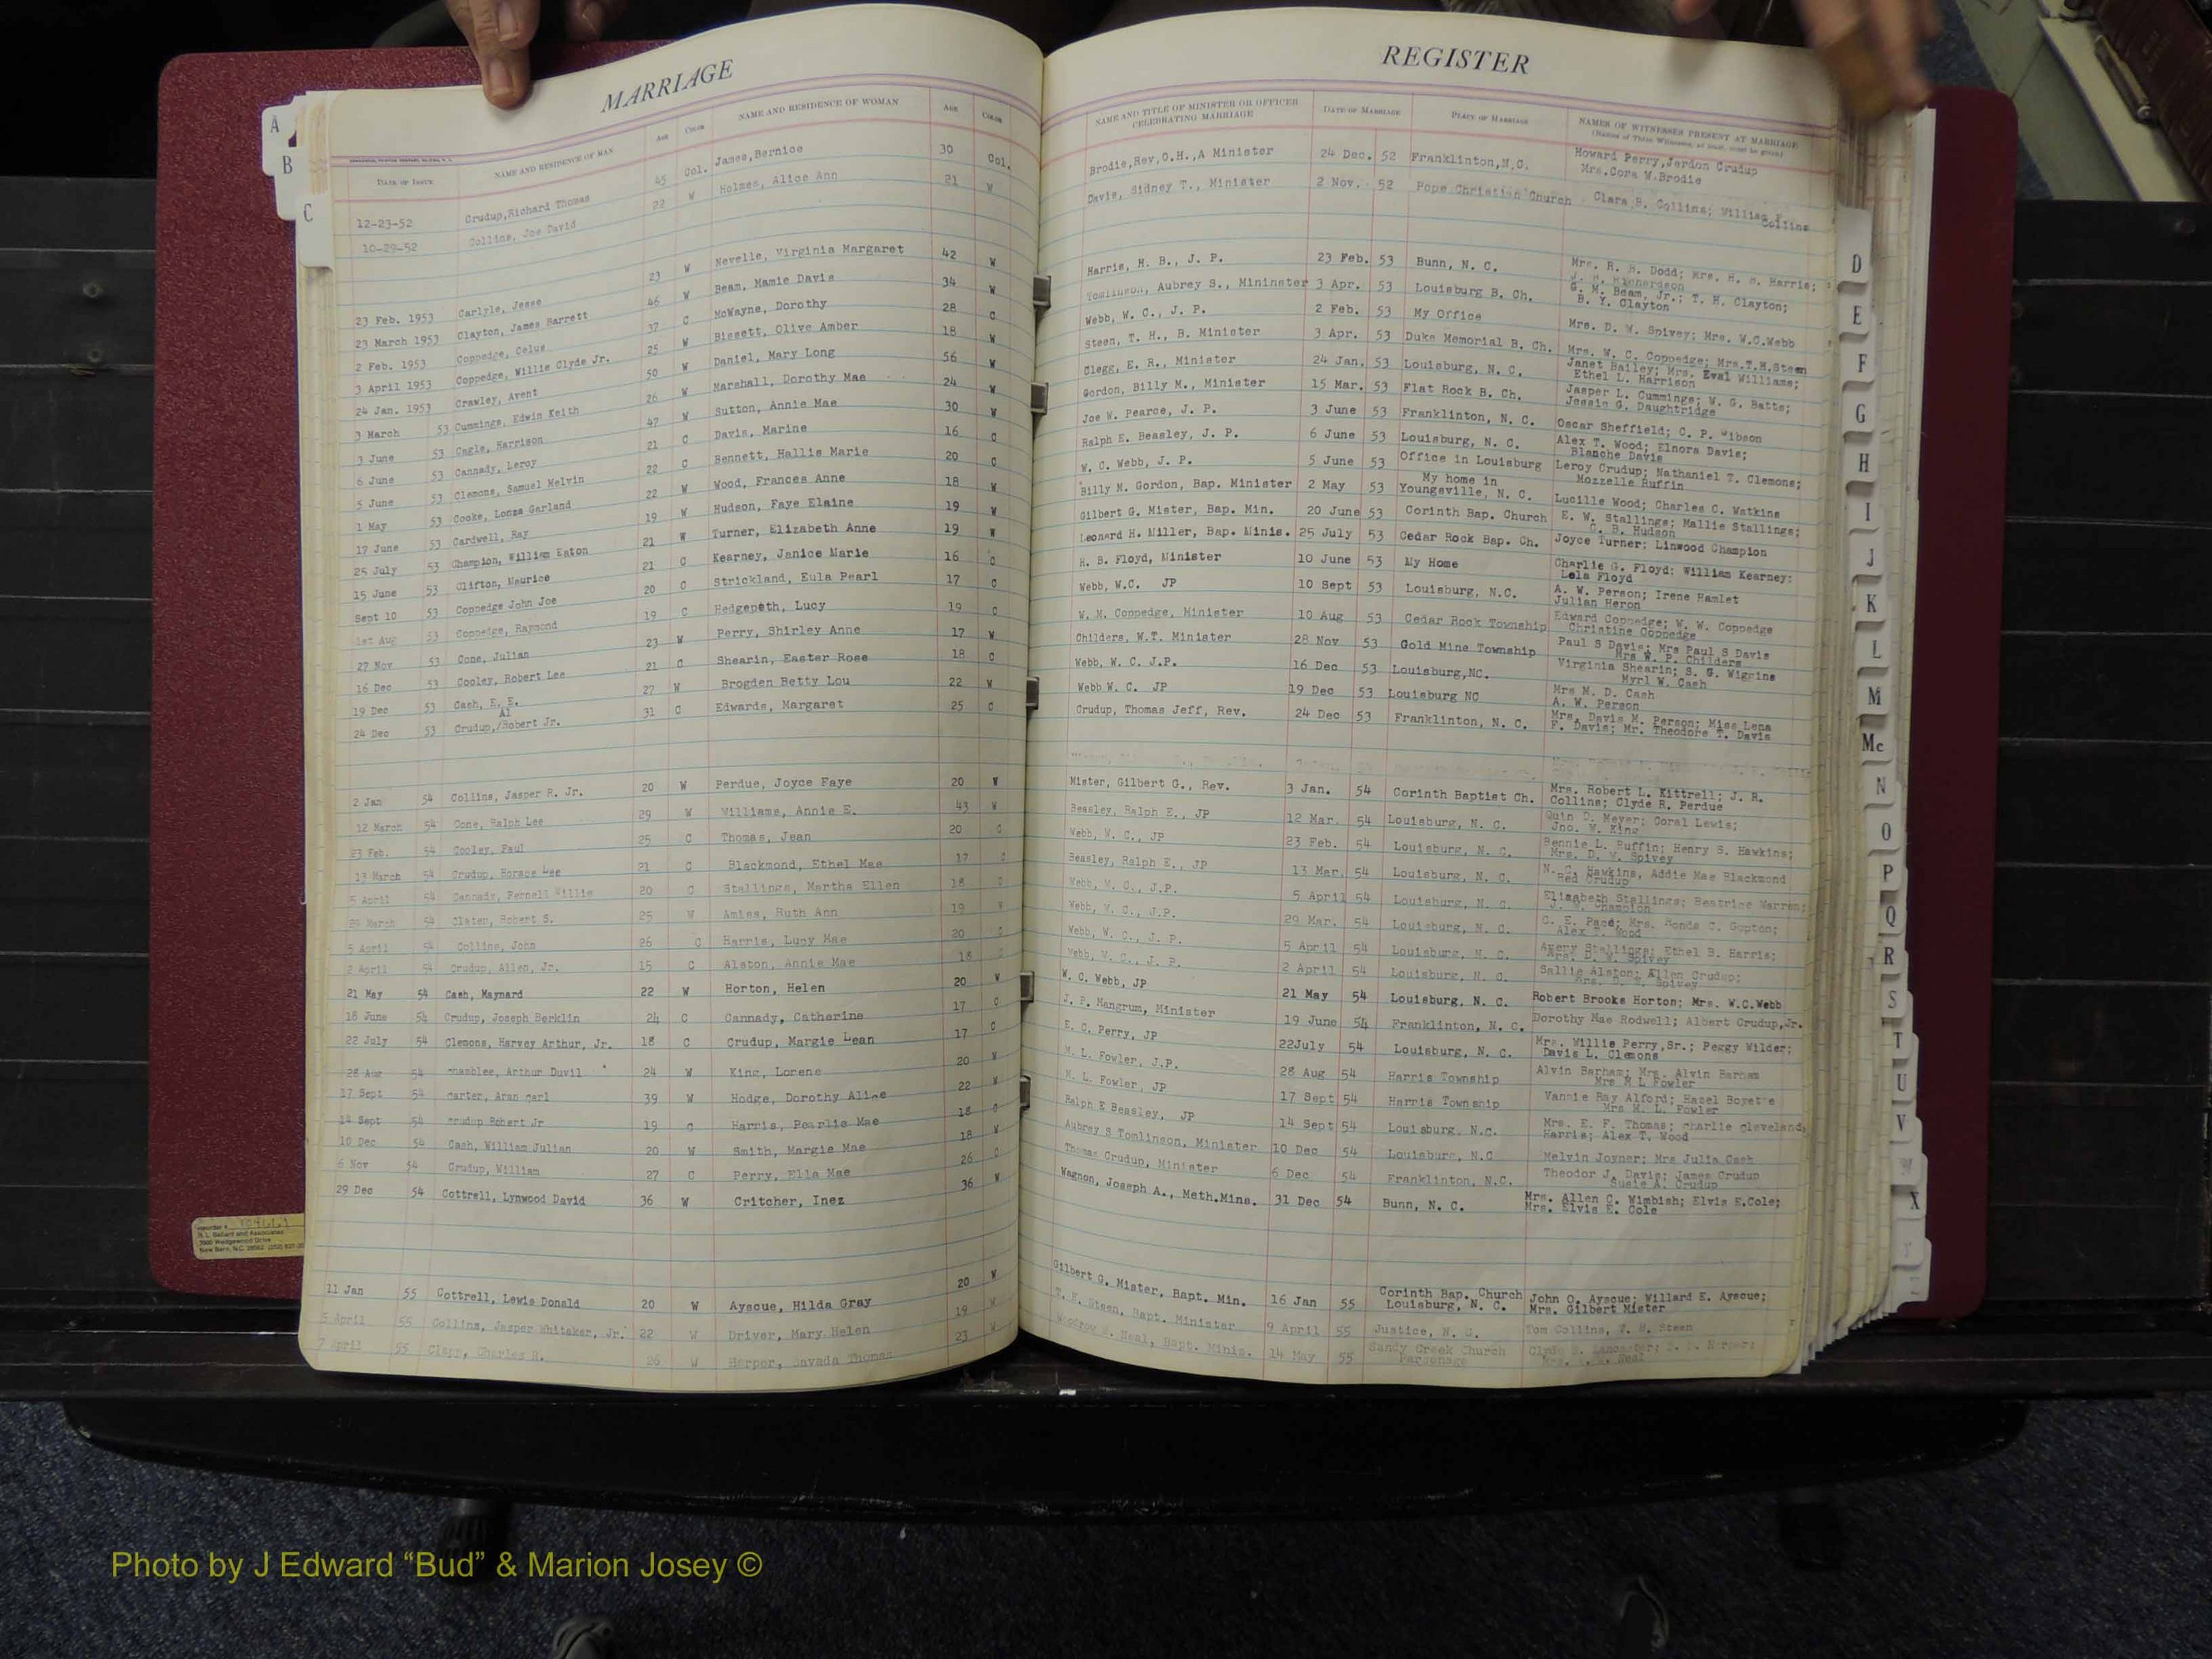 MARRIAGE
DATE OF ISSUE NAME AND RESIDENCE OF MAN AGE COLOR NAME AND RESIDENCE OF WOMAN AGE COLOR
12-23-52 Crudup,Richard Thomas 45 Col. James,Bernice 30 Col.
10-29-52 Collins, Joe David 22 W Holmes, Alice Ann 21 W
23 Feb. 1953 Carlyle, Jesse 23 W Nevelle, Virginia Margaret 42 W
23 March 1953 Clayton, James Barrett 46 W Beam, Mamie Davis 34 W
2 Feb. 1953 Coppedge, Celus 37 C McWayne, Dorothy 28 C
3 April 1953 Coppedge, Willie Clyde Jr. 25 W Bissett, Olive Amber 18 W
24 Jan. 1953 Crawley, Avent 50 W Daniel, Mary Long 56 W
3 March 53 Cummings, Edwin Keith 26 W Marshall, Dorothy Mae 24 W
3 June 53 Cagle, Harrison 47 W Sutton, Annie Mae 30 W
6 June 53 Cannady, Leroy 21 C Davis, Marine 16 C
5 June 53 Clemons, Samuel Melvin 22 C Bennett, Hallis Marie 20 C
1 May 53 Cooke, Lonza Garland 22 W Wood, Frances Anne 18 W
17 June 53 Cardwell, Ray 19 W Hudson, Faye Elaine 19 W
25 July 53 Champion, William Eaton 21 W Turner, Elizabeth Anne 19 W
15 June 53 Clifton, Maurice 21 C Kearney, Janice Marie 16 C
Sept 10 53 Coppedge John Joe 20 C Strickland, Eula Pearl 17 C
1st Aug 53 Coppedge, Raymond 19 C Hedgepeth, Lucy 19 C
27 Nov 53 Cone, Julian 23 W Perry, Shirley Anne 17 W
16 Dec 53 Cooley, Robert Lee 21 C Shearin, Easter Rose 18 C
19 Dec 53 Cash, E. E. 27 W Brogden Betty Lou 22 W
Al
24 Dec 53 Crudup,/Robert Jr. 31 C Edwards, Margaret 25 C
2 Jan 54 Collins, Jasper R. Jr. 20 W Perdue, Joyce Faye 20 W
12 March 54 Cone, Ralph Lee 29 W Williams, Annie E. 43 W
23 Feb. 54 Cooley, Paul 25 C Thomas, Jean 20 C
13 March 54 Crudup, Horace Lee 21 C Blackmond, Ethel Mae 17 C
5 April 54 Cannady, Fernell Willie 20 C Stallings, Martha Ellen 18 C
29 March 54 Clater, Robert S. 25 W Amiss, Ruth Ann 19 W
5 April 54 Collins, John 26 C Harris, Lucy Mae 20 C
2 April 54 Crudup, Allen, Jr. 15 C Alston, Annie Mae 18 C
21 May 54 Cash, Maynard 22 W Horton, Helen 20 W
18 June 54 Crudup, Joseph Berklin 24 C Cannady, Catherine 17 C
22 July 54 Clemons, Harvey Arthur, Jr. 18 C Crudup, Margie Lean 17 C
28 Aug 54 chamblee, Arthur Duvil 24 W King, Lorene 20 W
17 Sept 54 carter, Aran carl 39 W Hodge, Dorothy Alice 22 W
14 Sept 54 crudup Robert Jr 19 C Harris, Pearlie Mae 18 C
10 Dec 54 Cash, William Julian 20 W Smith, Margie Mae 18 W
6 Nov 54 Crudup, William 27 C Perry, Ella Mae 26 C
29 Dec 54 Cottrell, Lynwood David 36 W Critcher, Inez 36 W
11 Jan 55 Cottrell, Lewis Donald 20 W Ayscue, Hilda Gray 20 W
5 April 55 Collins, Jasper Whitaker, Jr. 22 W Driver, Mary Helen 19 W
7 April 55 Clapp, Charles R. 26 W Harper, Savada Thomas 23 W
REGISTER
NAME AND TITLE OF MINISTER OR OFFICER CELEBRATING MARRIAGE DATE OF MARRIAGE PLACE OF MARRIAGE NAMES OF WITNESSES PRESENT AT MARRIAGE
(Names of Three Witnesses, at least, must be given)
Brodie,Rev,O.H.,A Minister 24 Dec. 52 Franklinton,N.C. Howard Perry,Jerdon Crudup
Mrs.Cora W.Brodie
Davis, Sidney T., Minister 2 Nov. 52 Pope Christian Church Clara B. Collins; William F. Collins
Harris, H. B., J. P. 23 Feb. 53 Bunn, N. C. Mrs. R. B. Dodd; Mrs. H. B. Harris;
J. Richardson
Tomlinson, Aubrey S., Mininster 3 Apr. 53 Louisburg B. Ch. G. M. Beam, Jr.; T. H. Clayton;
B. Y. Clayton
Webb, W. C., J. P. 2 Feb. 53 My Office Mrs. D. W. Spivey; Mrs. W.C.Webb
Steen, T. H., B. Minister 3 Apr. 53 Duke Memorial B. Ch. Mrs. W. C. Coppedge; Mrs.T.H.Steen
Clegg, E. R., Minister 24 Jan. 53 Louisburg, N. C. Janet Bailey; Mrs. Eval Williams;
Ethel L. Harrison
Gordon, Billy M., Minister 15 Mar. 53 Flat Rock B. Ch. Jasper L. Cummings; W. G. Batts;
Jessie G. Daughtridge
Joe W. Pearce, J. P. 3 June 53 Franklinton, N. C. Oscar Sheffield; C. P. Gibson
Ralph E. Beasley, J. P. 6 June 53 Louisburg, N. C. Alex T. Wood; Elnora Davis;
Blanche Davis
W. C. Webb, J. P. 5 June 53 Office in Louisburg Leroy Crudup; Nathaniel T. Clemons;
Mozzelle Ruffin
Billy M. Gordon, Bap. Minister 2 May 53 My home in Youngsville, N. C. Lucille Wood; Charles C. Watkins
Gilbert G. Mister, Bap. Min. 20 June 53 Corinth Bap. Church E. W. Stallings; Mallie Stallings;
C. B. Hudson
Leonard H. Miller, Bap. Minis. 25 July 53 Cedar Rock Bap. Ch. Joyce Turner; Linwood Champion
H. B. Floyd, Minister 10 June 53 My Home Charlie G. Floyd; William Kearney;
Lela Floyd
Webb, W.C. JP 10 Sept 53 Louisburg, N.C. A. W. Person; Irene Hamlet
Julian Heron
W. M. Coppedge, Minister 10 Aug 53 Cedar Rock Township Edward Coppedge; W. W. Coppedge
Christine Coppedge
Childers, W.T. Minister 28 Nov 53 Gold Mine Township Paul S Davis; Mrs Paul S Davis
Mrs W. P. Childers
Webb, W. C. J.P. 16 Dec 53 Louisburg,NC. Virginia Shearin; S. G. Wiggins
Myrl W. Cash
Webb W. C. JP 19 Dec 53 Louisburg NC Mrs M. D. Cash
A. W. Person
Crudup, Thomas Jeff, Rev. 24 Dec 53 Franklinton, N. C. Mrs. Davis M. Person; Miss Lena
F. Davis; Mr. Theodore T. Davis
Mister, Gilbert G., Rev. 3 Jan. 54 Corinth Baptist Ch. Mrs. Robert L. Kittrell; J. R.
Collins; Clyde R. Perdue
Beasley, Ralph E., JP 12 Mar. 54 Louisburg, N. C. Quin D. Meyer; Coral Lewis;
Jno. W. King
Webb, W. C., JP 23 Feb. 54 Louisburg, N. C. Bennie L. Ruffin; Henry S. Hawkins;
Mrs. D. W. Spivey
Beasley, Ralph E., JP 13 Mar. 54 Louisburg, N. C. Hawkins, Addie Mae Blackmond
Red Crudup
Webb, W. C., J.P. 5 April 54 Louisburg, N. C. Elizabeth Stallings; Beatrice Warren;
J. W. Champion
Webb, W. C., J.P. 29 Mar. 54 Louisburg, N. C. C. E. Pace; Mrs. Ronda C. Gupton;
Alex T. Wood
Webb, W. C., J. P. 5 April 54 Louisburg, N. C. Avery Stallings; Ethel B. Harris;
Mrs. D. W. Spivey
Webb, W. C., J. P. 2 April 54 Louisburg, N. C. Sallie Alston; Allen Crudup;
Mrs. D. W. Spivey
W. C. Webb, JP 21 May 54 Louisburg, N. C. Robert Brooks Horton; Mrs. W.C.Webb
J. P. Mangrum, Minister 19 June 54 Franklinton, N. C. Dorothy Mae Rodwell; Albert Crudup,Jr.
E. C. Perry, JP 22July 54 Louisburg, N. C. Mrs. Willie Perry,Sr.; Peggy Wilder;
Davis L. Clemons
M. L. Fowler, J.P. 28 Aug 54 Harris Township Alvin Barham; Mrs. Alvin Barham
Mrs M L Fowler
M. L. Fowler, JP 17 Sept 54 Harris Township Vannie Ray Alford; Hazel Boyette
Mrs M. L. Fowler
Ralph E Beasley, JP 14 Sept 54 Louisburg, N.C. Mrs. E. F. Thomas; charlie cleveland
Harris; Alex T. Wood
Aubrey S Tomlinson, Minister 10 Dec 54 Louisburg, N.C Melvin Joyner; Mrs Julia Cash
Thomas Crudup, Minister 6 Dec 54 Franklinton, N.C. Theodor J. Davis; James Crudup
Susie A. Crudup
Wagnon, Joseph A., Meth.Mins. 31 Dec 54 Bunn, N. C. Mrs. Allen C. Wimbish; Elvis E.Cole;
Mrs. Elvis E. Cole
Gilbert G. Mister, Bapt. Min. 16 Jan 55 Corinth Bap. Church Louisburg, N. C. John O. Ayscue; Willard E. Ayscue;
Mrs. Gilbert Mister
T. H. Steen, Bapt. Minister 9 April 55 Justice, N. C. Tom Collins, T. H. Steen
Woodrow M. Neal, Bapt. Minis. 14 May 55 Sandy Creek Church Parsonage Clyde B. Lancaster; Harper;
Neal
A
B
C
D
E
F
G
H
I
J
K
L
M
Mc
N
O
P
Q
R
S
T
U
V
W
X
Y
H. L. Ballard and Associates
3900 Wedgewood Drive
Photo by J Edward “Bud” & Marion Josey ©